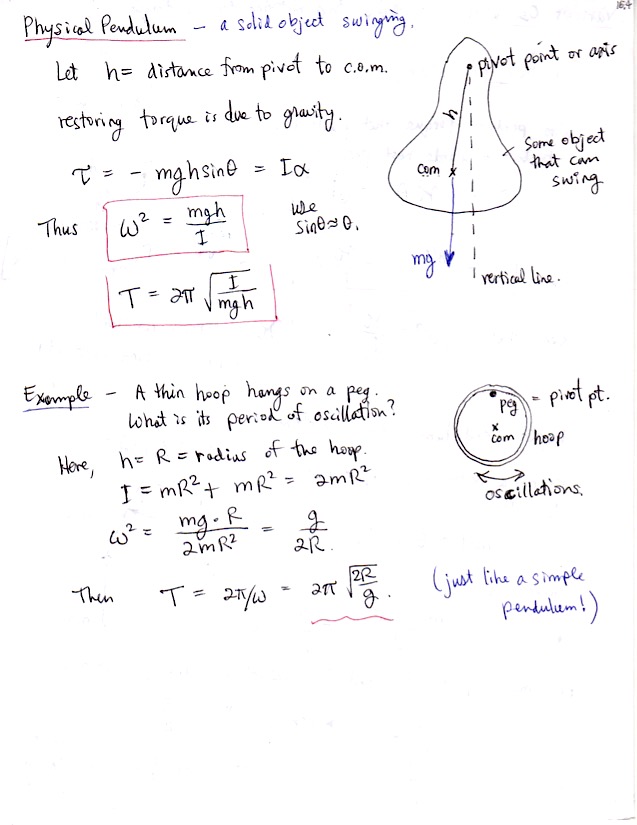 16.4
Physical Pendulum - a solid object swinging.
Let h = distance from pivot to c.o.m.
restoring torque is due to gravity.
τ = - mgh sinθ = Iα
Thus ω² = mgh/I
use
sinθ ≈ θ.
T = 2π √(I/mgh)
pivot point or axis
h
com
Some object
that can
swing
mg
vertical line.
Example - A thin hoop hangs on a peg.
What is its period of oscillation?
Here, h = R = radius of the hoop.
I = mR² + mR² = 2mR²
ω² = mg·R/2mR² = g/2R.
Then T = 2π/ω = 2π √(2R/g).
(just like a simple
pendulum!)
peg = pivot pt.
com
hoop
oscillations.